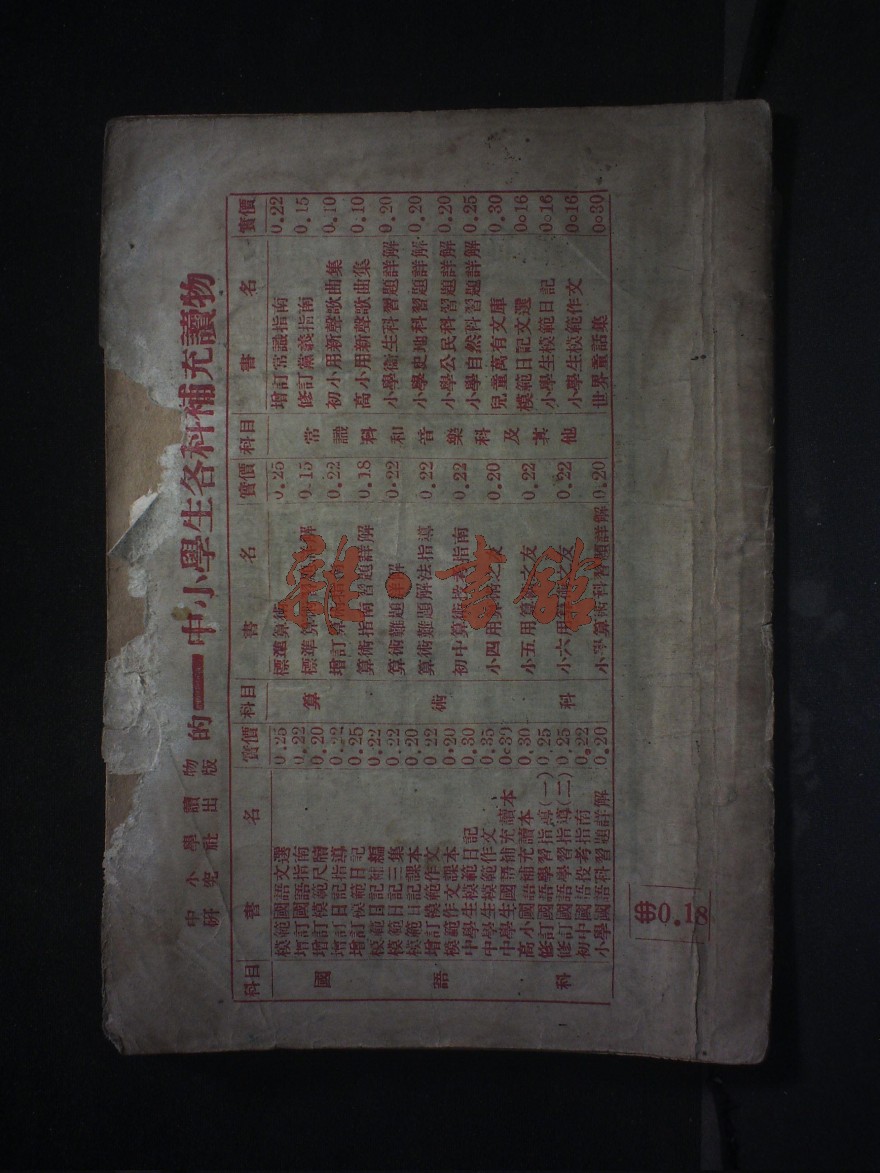 中小學讀物
研究社出版
的——中小學生各科補充讀物
科目 書名 實價
國語科
模範國語文選 0.25
增訂國語指南 0.22
增訂模範尺牘 0.20
增訂日記指導 0.22
增訂模範日記 0.25
模範日記 編 0.22
模範日記三集 0.22
模範日記課本 0.20
增訂模範作文 0.22
模範作文課本 0.20
中學生模範日記 0.30
中學生模範作文 0.35
中學生國語補充讀本 0.30
高小國語補充讀本 0.30
修訂國語學習指導(一) 0.25
修訂國語學習指導(二) 0.25
初中國語投考指南 0.22
小學國語科習題詳解 0.20
科目 書名 實價
算術科
標準算術 0.25
標準算 解 0.15
增訂算 0.22
算術指南習題詳解 0.18
算術難題 解 0.22
算術難題解法指導 0.22
初中算術投考指南 0.22
小四用算術之友 0.20
小五用算術之友 0.22
小六用算術之友 0.22
小學算術科習題詳解 0.20
科目 書名 實價
常識科和音樂科及其他
增訂常識指南 0.22
修訂黨義指南 0.15
初小用新聲歌曲集 0.10
高小用新聲歌曲集 0.10
小學衞生科習題詳解 0.20
小學史地科習題詳解 0.20
小學公民科習題詳解 0.20
小學自然科習題詳解 0.25
兒童萬有文庫 0.30
模範日記文選 0.16
小學生模範日記 0.16
小學生模範作文 0.16
世界童話集 0.30
0.18